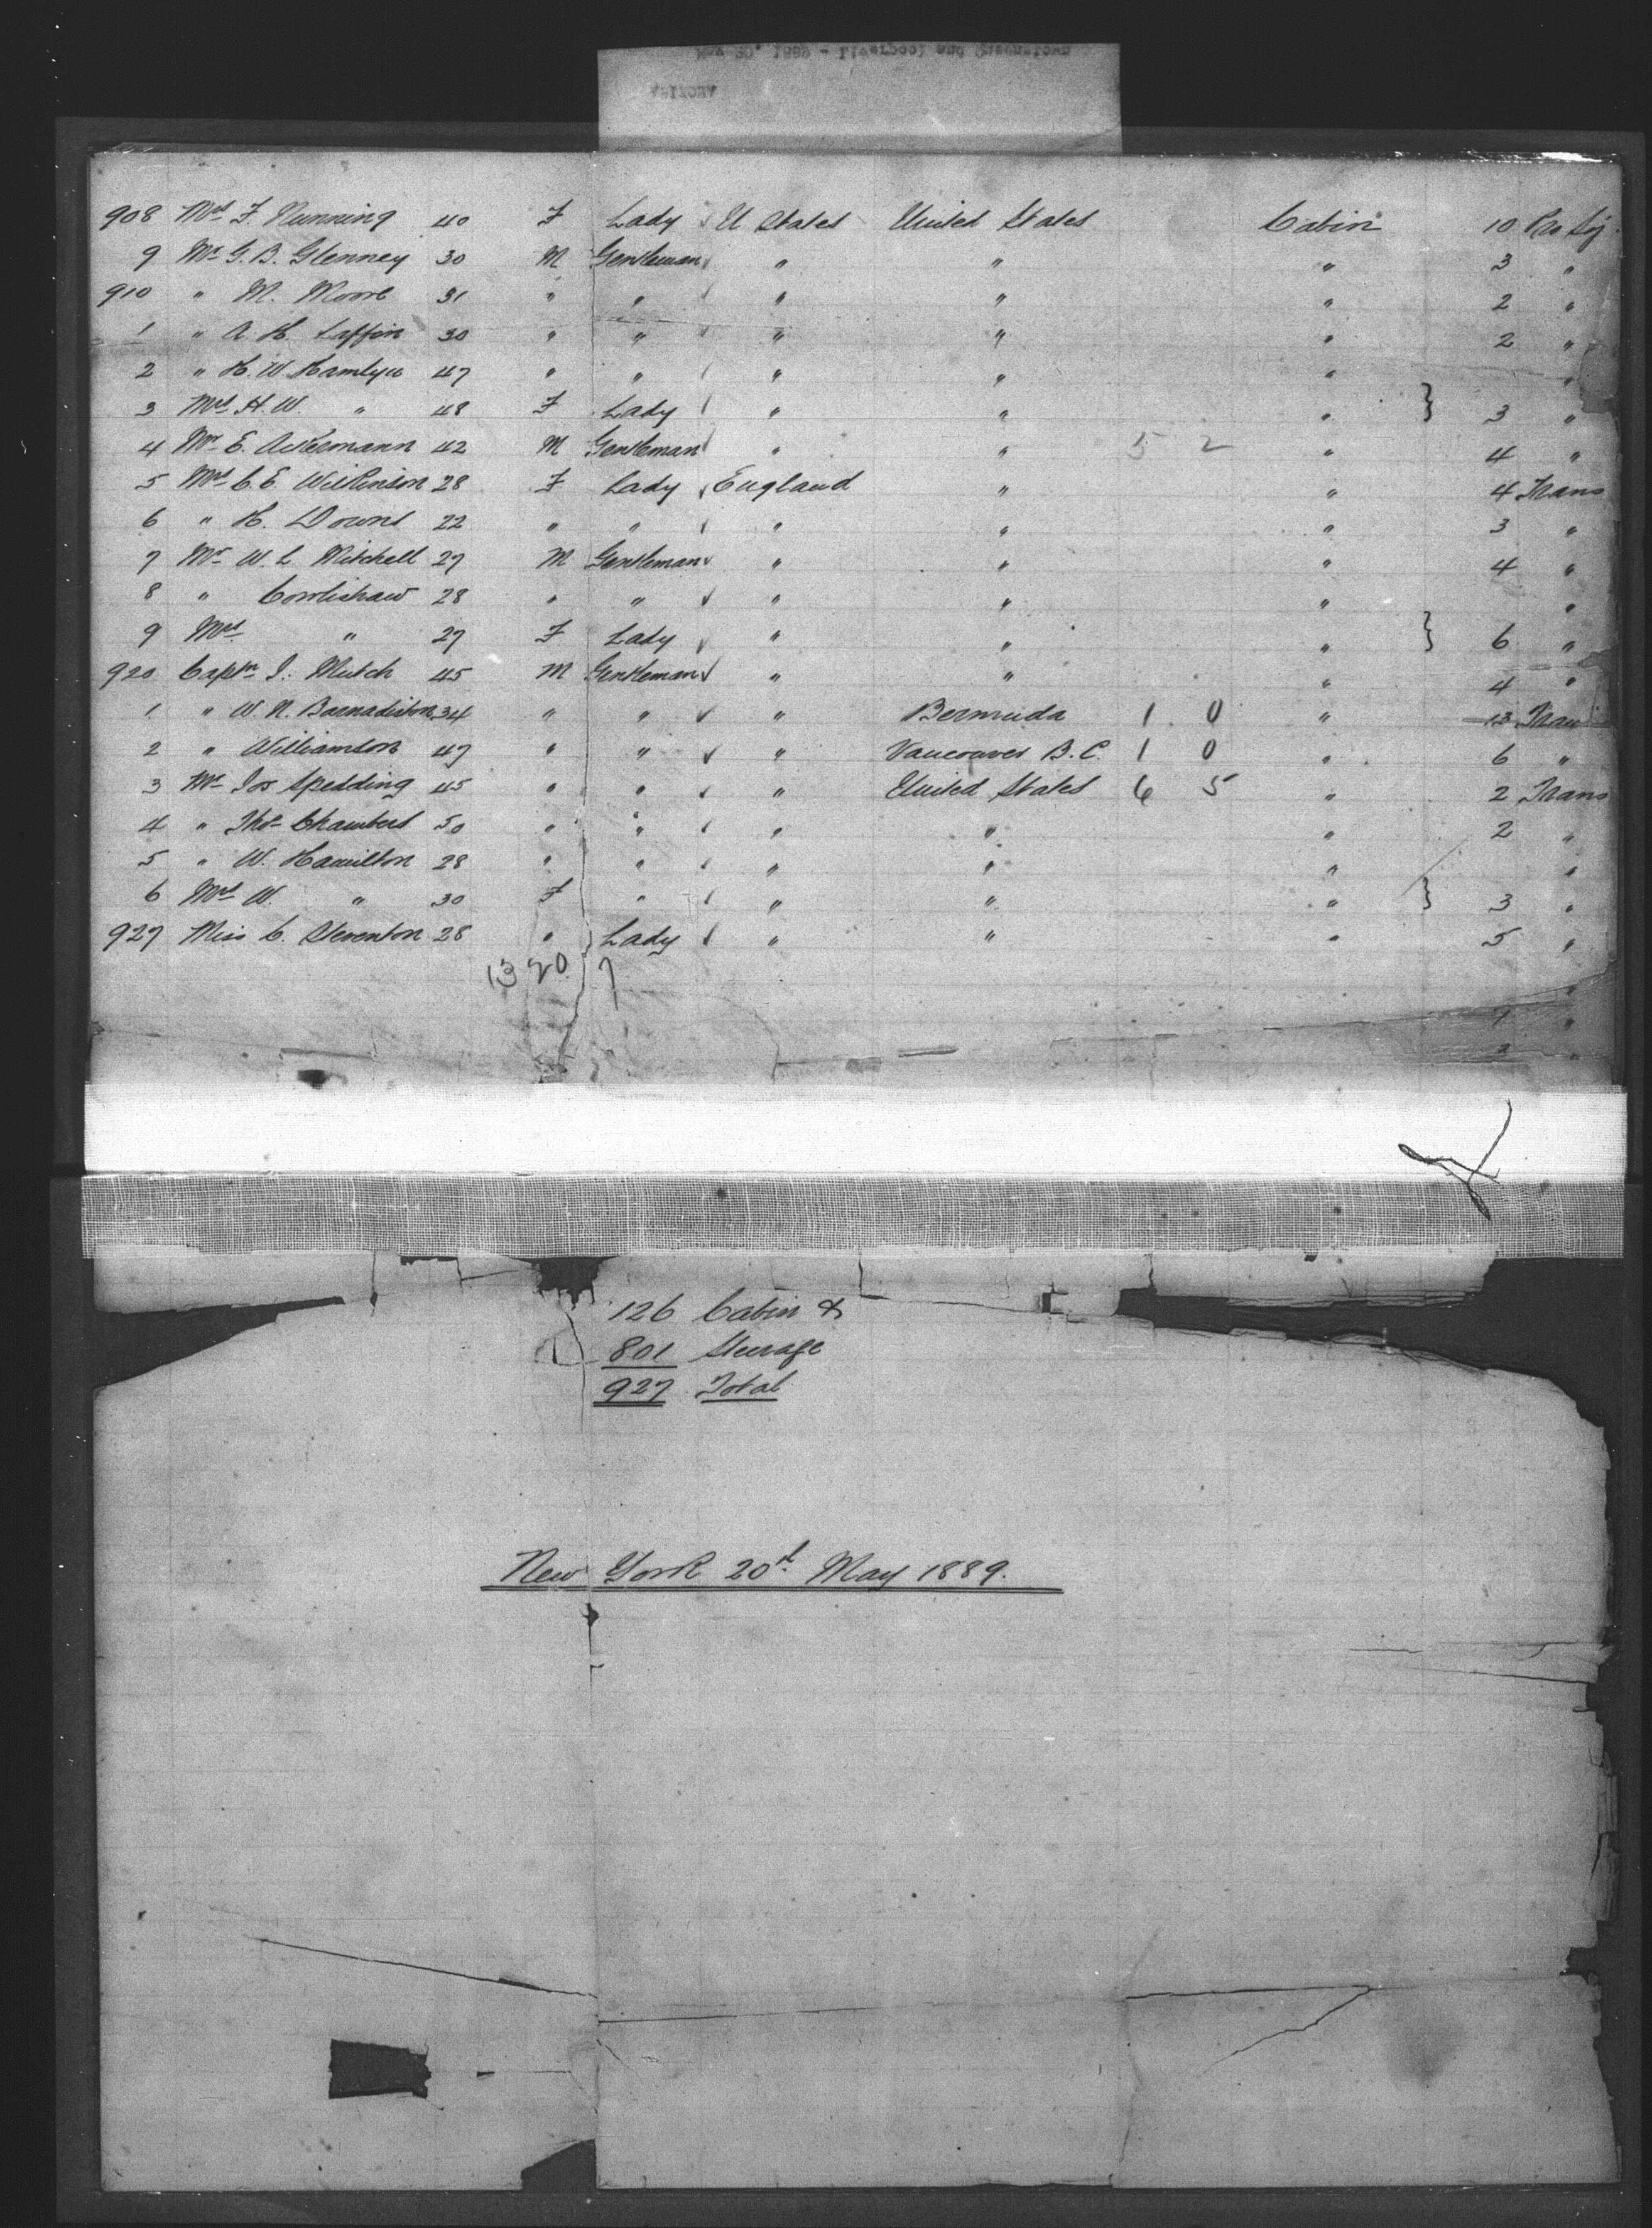 May 20, 1889 - Liverpool and Queenstown
ARIZONA
908 Mrs F. Nunning 40 F Lady U States United States Cabin 10 Pro Soj
9 Mr G. B. Glenney 30 M Gentleman " " " 3 "
910 " M. Moore 31 " " " " " 2 "
1 " A. H. Laffin 30 " " " " " 2 "
2 " H. W. Hamlyn 47 " " " " " "
3 Mrs H. W. " 48 F Lady " " " } 3 "
4 Mr E. Ackermann 42 M Gentleman " " 5 2 " 4 "
5 Mrs C. E. Wilkinson 28 F Lady England " " 4 Trans
6 " H. Downs 22 " " " " " 3 "
7 Mr W. L. Mitchell 27 M Gentleman " " " 4 "
8 " Cowlishaw 28 " " " " " "
9 Mrs " 27 F Lady " " " } 6 "
920 Captn J. Mutch 45 M Gentleman " " " 4 "
1 " W. N. Barnadiston 34 " " " Bermuda 1 0 " 13 Trans
2 " Williamson 47 " " " Vancouver B.C. 1 0 " 6 "
3 Mr Jos Spedding 45 " " " United States 6 5 " 2 Trans
4 " Thos Chambers 50 " " " " " 2 "
5 " W. Hamilton 28 " " " " " "
6 Mrs W. " 30 F " " " " } 3 "
927 Miss C. Steventon 28 " Lady " " " 5 "
13 20 7
126 Cabin &
801 Steerage
927 Total
New York 20th May 1889.